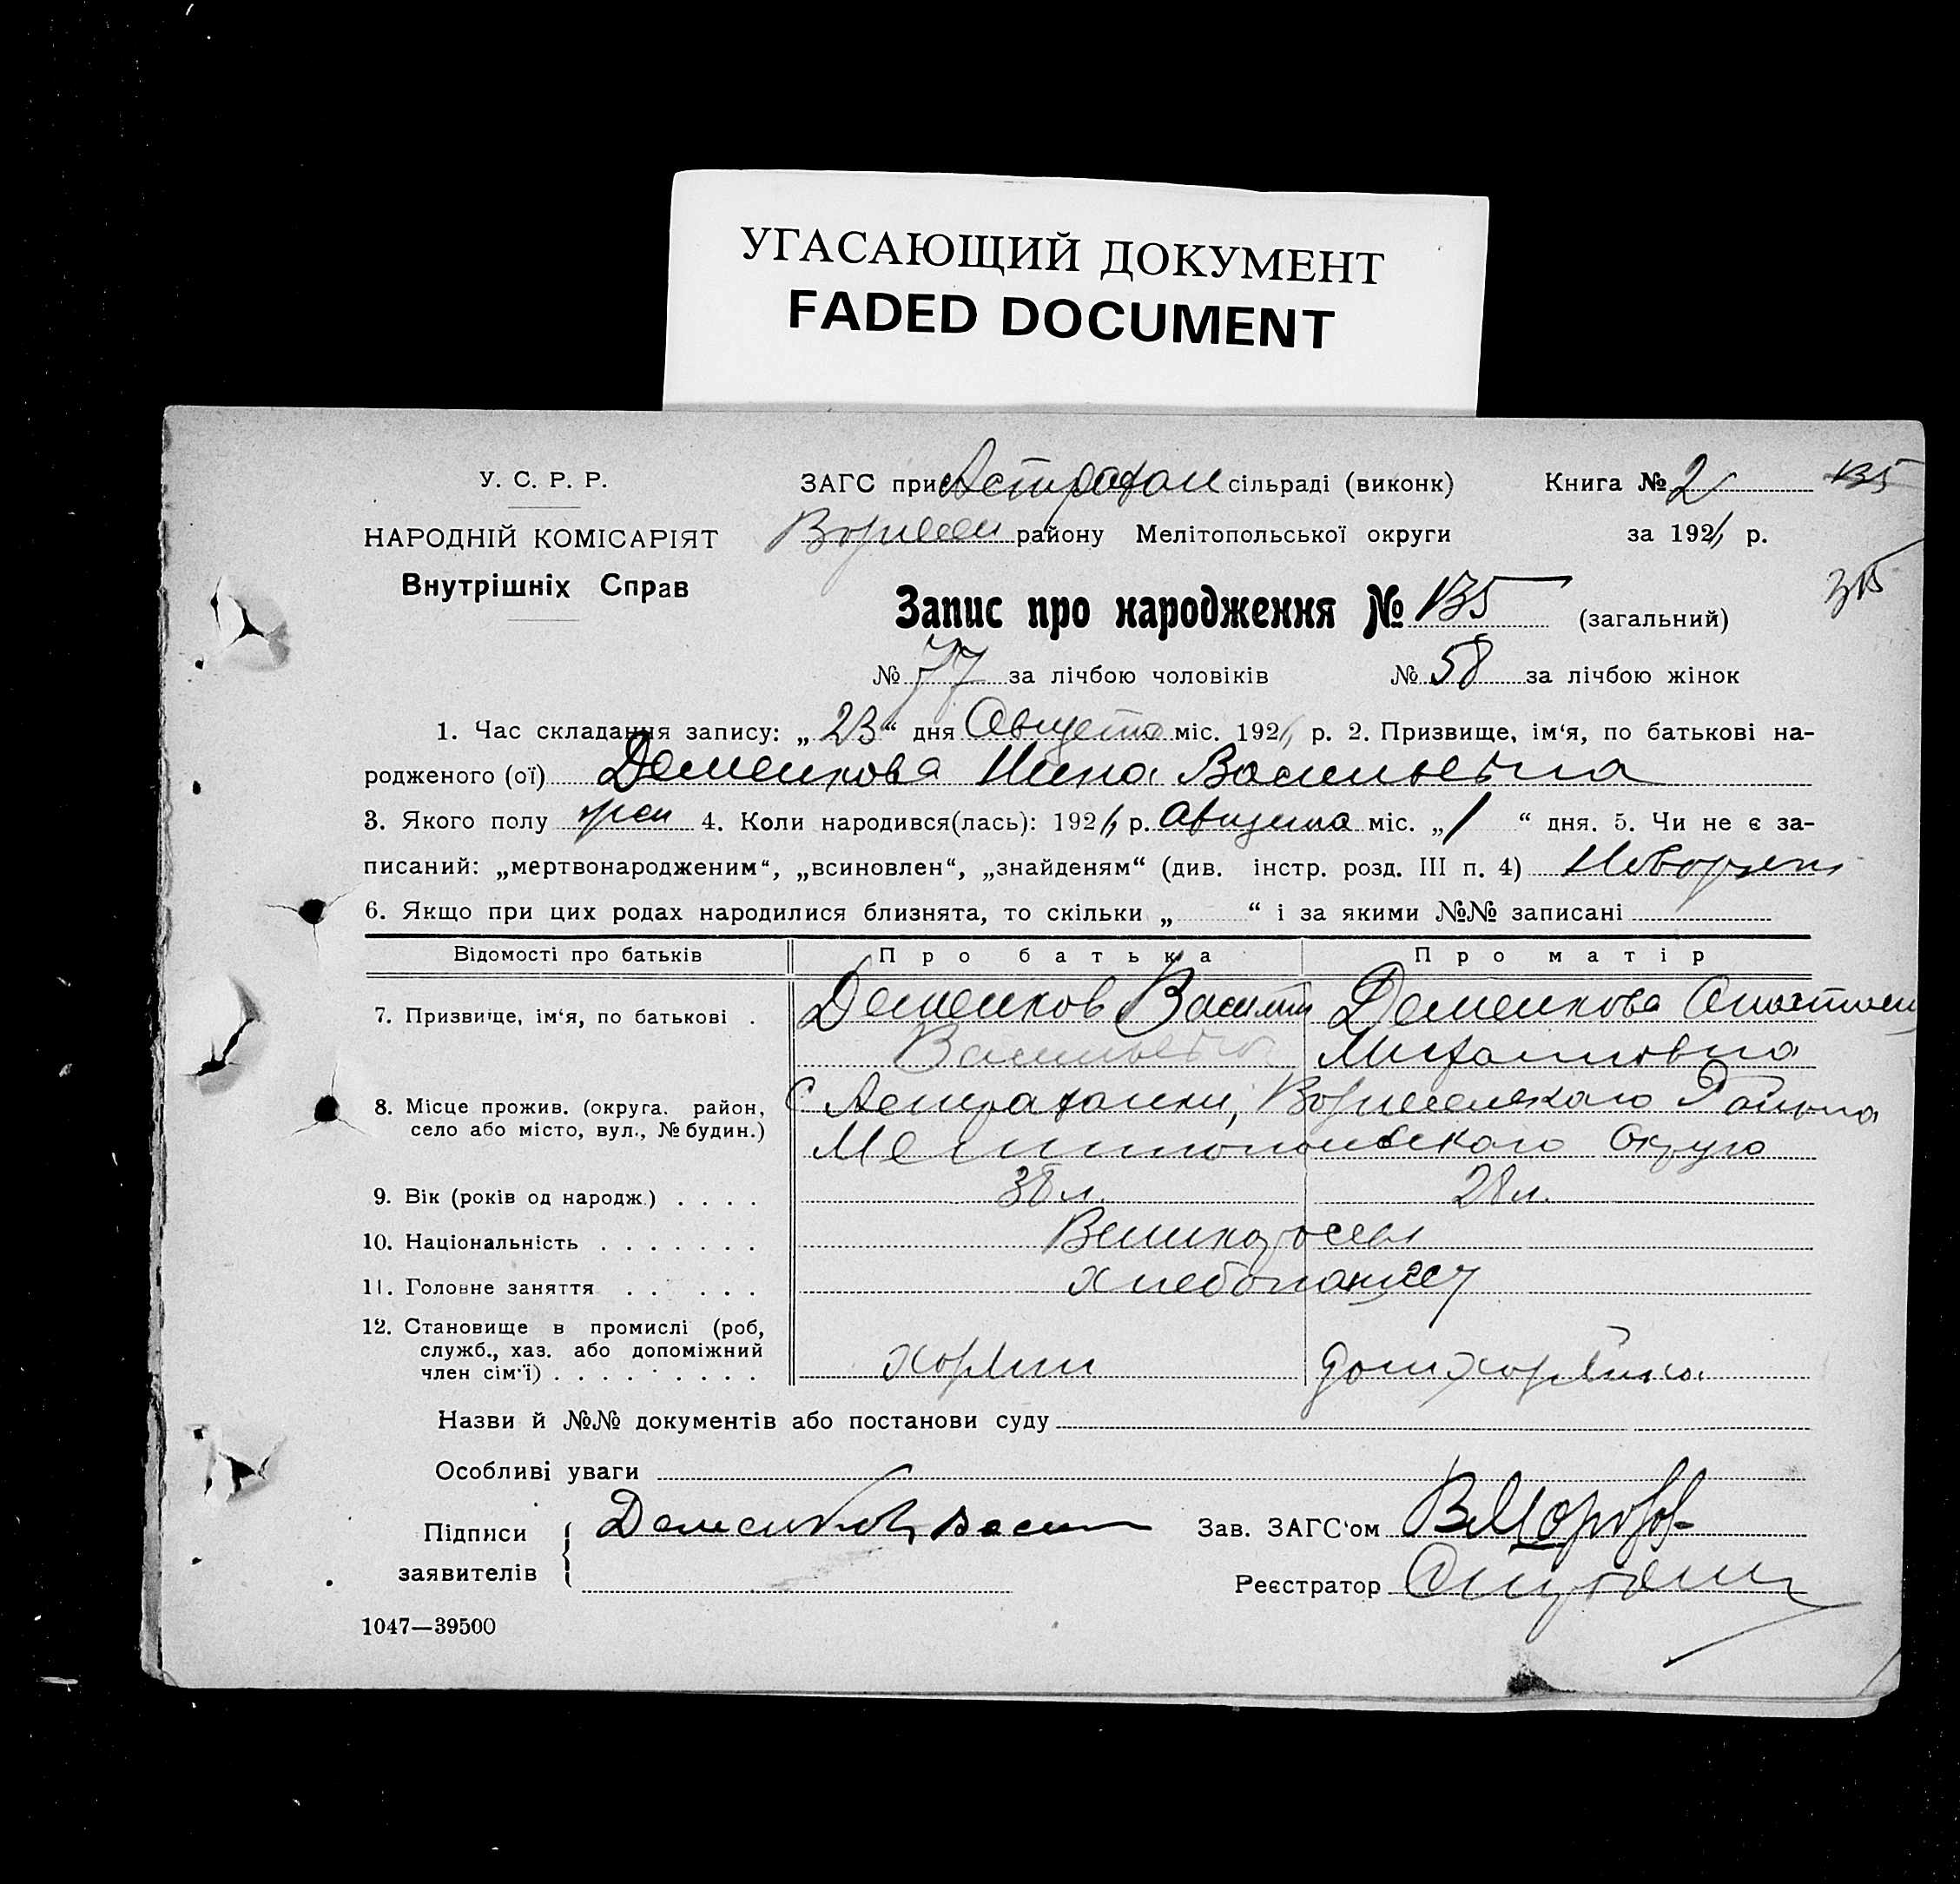 УГАСАЮЩИЙ ДОКУМЕНТ
FADED DOCUMENT
У. С. Р. Р.
НАРОДНІЙ КОМІСАРІЯТ
Внутрішніх Справ
ЗАГС при Астрахан сільраді (виконк)
району Мелітопольської округи
Книга № 2
135
за 192 р.
315
Запис про народження № 135 (загальний)
№ 77 за лічбою чоловіків № 58 за лічбою жінок
1. Час складання запису: „ 23 “ дня Августа міс. 192 р. 2. Призвище, ім‘я, по батькові на-
родженого (ої) Деменкова Нина Васильевна
3. Якого полу жен 4. Коли народився(лась): 192 р. Августа міс. „ 1 “ дня. 5. Чи не є за-
писаний: „мертвонародженим“, „всиновлен“, „знайденям“ (див. інстр. розд. III п. 4)
6. Якщо при цих родах народилися близнята, то скільки „ “ і за якими №№ записані
Відомості про батьків Про батька Про матір
7. Призвище, ім‘я, по батькові . Деменков Василий Деменкова
Михайловна
8. Місце прожив. (округа. район, С Астраханки, Района
село або місто, вул., № будин.) Мелитопольского Округа
9. Вік (років од народж.) . . . . 38 л. 28 л.
10. Національність . . . . . . . Великоросы
11. Головне заняття . . . . . .
12. Становище в промислі (роб,
служб., хаз. або допоміжний
член сім‘ї) . . . . . . . . .
Назви й №№ документів або постанови суду
Особливі уваги
Підписи
заявителів
Деменков
Зав. ЗАГС‘ом
Реєстратор
1047—39500